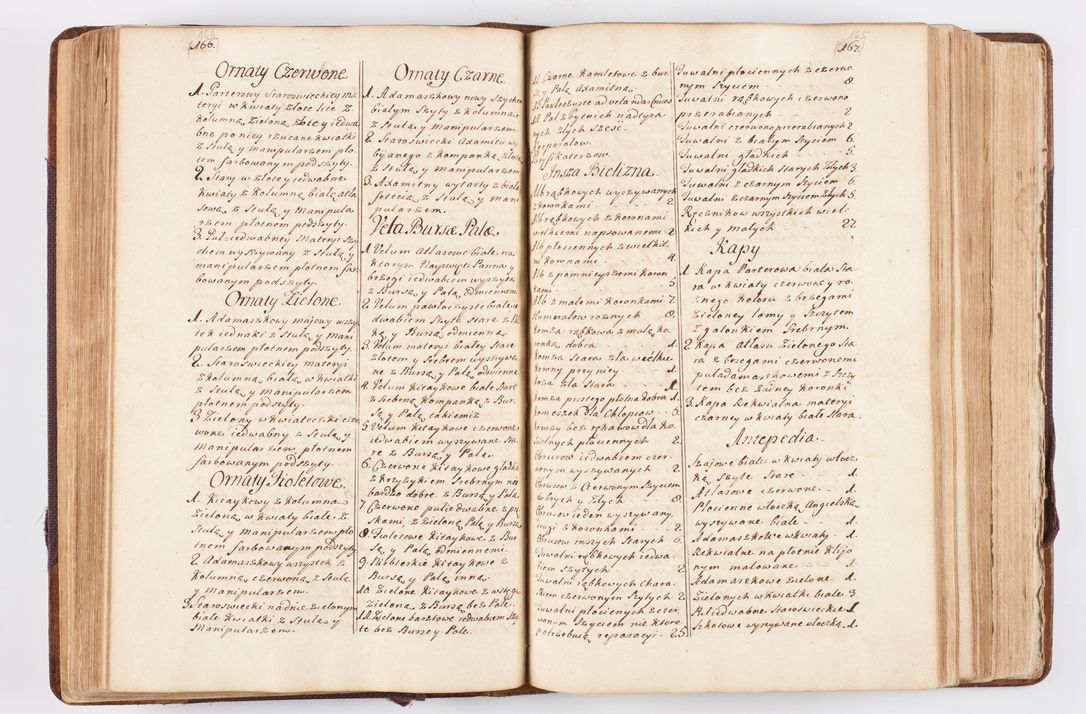 166.
Ornaty Czerwone
1. Parterowy Staroswieckiey ma
teryi w kwiaty złote lite z
kolumną zieloną złotey iedwa
bne po niey rzucane kwiatki
z Stułą y manipularzem płó
tem farbowanym podszyty.
2. Stary w złote y iedwabne
kwiaty z kolumną białą atła
sową z Stułą y Manipula
rzem płotnem podszyty.
3. Puł iedwabney Materyi Szy
chem wyszywany z Stułą y
manipularzem płotnem far
bowanym podszyty.
Ornaty Zielone.
1. Adamaszkowy majowy wszy
tek iednaki z Stułą y Mani
pularzem płotnem podszyty.
2. Staroswieckiey materyi
z kolumną białą w kwiatki
z Stułą y manipularzem
płotnem podszyty.
3. Zielony w kwiateczki czer
wone iedwabny z Stułą y
Manipularzem płotnem
farbowanym podszyty.
Ornaty Fioletowe.
1. Kitaykowy z kolumną
Zieloną w kwiaty białe z
Stułą y Manipularzem pło
tnem farbowanym podszyty
2. Adamaszkowy wszystek z
kolumną czerwoną z Stułą
y manipularzem.
3. Staroswiecki na dnie zielonym
białe kwiatki z Stułą y
Manipularzem.
Ornaty Czarne
1. Adamaszkowy nowy Szychem
białym Szyty z kolumną
z Stułą y Manipularzem.
2. Staroswiecki Axamitu wy
byianego z kompanką złotą
z Stułą y Manipularzem
3. Axamitny wytarty z białą
z Stułą y Mani
pularzem.
Vela Bursæ Palæ
1. Velum Atłasowe białe na
ktorym Nayswięt: Panna y
brzegi iedwabiem wyszyte
z Bursą y Palą odmienną
2. Velum pawłoczyste białe ie
dwabiem Szyte Stare z Pal
ką y Bursą odmienną.
3. Velum materyi białey Stare
złotem y Srebrem wyszywa
ne z Bursą y Palą odmienną
4. Velum kitaykowe białe Stare
z Srebrną kompanką z Bur
są y Palą takiemiż
5. Velum kitaykowe czerwone
iedwabiem wyszywane Sta
re z Bursą y Palą.
6. Czerwone kitaykowe gładkie
z krzyżykiem Srebrnym nie
bardzo dobre. z Bursą y Palą
7. Czerwone puł iedwabne z pą
skami, z Zieloną Palą y Bursą
8. Fioletowe kitaykowe z Bur
są y Palą odmiennemi.
9. kitaykowe z
Bursą y Palą inną.
10. Zielone kitaykowe z wstęgą
Zieloną z Bursą bez Pale.
11. Zielone barstowe iedwabiem Szy
te bez Bursey Pale.
167.
12. Czarne kamletowe z bur
są y Palą Axamitną.
Pawłoczyste ad velandas Cruces
14 Pal zbytnich nad tyra
tych złych Szesc.
Korporałow.
Puryfikaterzow.
Insza Bielizna.
Alb rąbkowych wyszywanych
z koronkami 2
Alb rąbkowych z koronami
wielkiemi napsowanemi 2
Alb płociennych z wielkie
mi koronami. 4.
Alb z pomnieyszemi koron
kami 5
Alb z małemi koronkami 7.
Humerałow roznych 8.
Komża rąbkowa z małą ko
ronką dobra 1.
Komża Stara zła wielkie
korony przy niey 1.
Komża zła Stara 1.
Komża prostego płotna dobra 1.
Komeszek dla Chłopcow 6.
Komży bez rękawow dla Ko
scielnych płociennych 2.
Obrusow iedwabiem czer
wonym wyszywanych 2.
Obrusow z Czerwonym Szyciem
Dobrych y Złych 8.
Obrus ieden wyszywany
drugi z koronkami 2
Obrusow inszych Starych 6.
Tuwalni rąbkowych iedwa
biem Szytych 2.
Tuwalni rąbkowych Chara
skiem czerwonym Szytych 2
Tuwalni płociennych z czer
wonym Szyciem nie ktore
potrzebują reparacyi. 25.
Tuwalni płociennych z czerwo
nym Szyciem 8.
Tuwalni rąbkowych czerwono
przerabianych 2
Tuwalni czerwono przerabianych 2
Tuwalni z białym Szyciem 6.
Tuwalni gładkich 5.
Tuwalni gładkich Starych Złych 3
Tuwalni z czarnym Szyciem 6.
Tuwalni z czarnym Szyciem Złych 5.
Ręcznikow wszystkich wiel
kich y małych 27.
Kapy
1. Kapa Parterowa biała Sta
ra w kwiaty czerwone y ro
znego koloru z brzegami
Zieloney lamy y Szczytem
z galonkiem Srebrnym.
2. Kapa Atłasu Zielonego Sta
ra z brzegami czerwonemi
puładamaszkowemi z Szczy
tem bez żadney koronki
3. Kapa Rekwialna materyi
czarney w kwiaty białe Stara.
Antepedia.
Szajowe białe w kwiaty włocz
ką szyte Stare 1.
Atłasowe czerwone 1.
Płocienne włoczką Angielską
wyszywane białe 1.
Adamaszkowe w kwiaty 1.
Rekwialne na płotnie klijo
nym malowane 1.
Adamaszkowe zielone 1.
Zielonych w kwiatki białe 3
Puł iedwabne Staroswieckie 1
wyszywane włoczką 1.